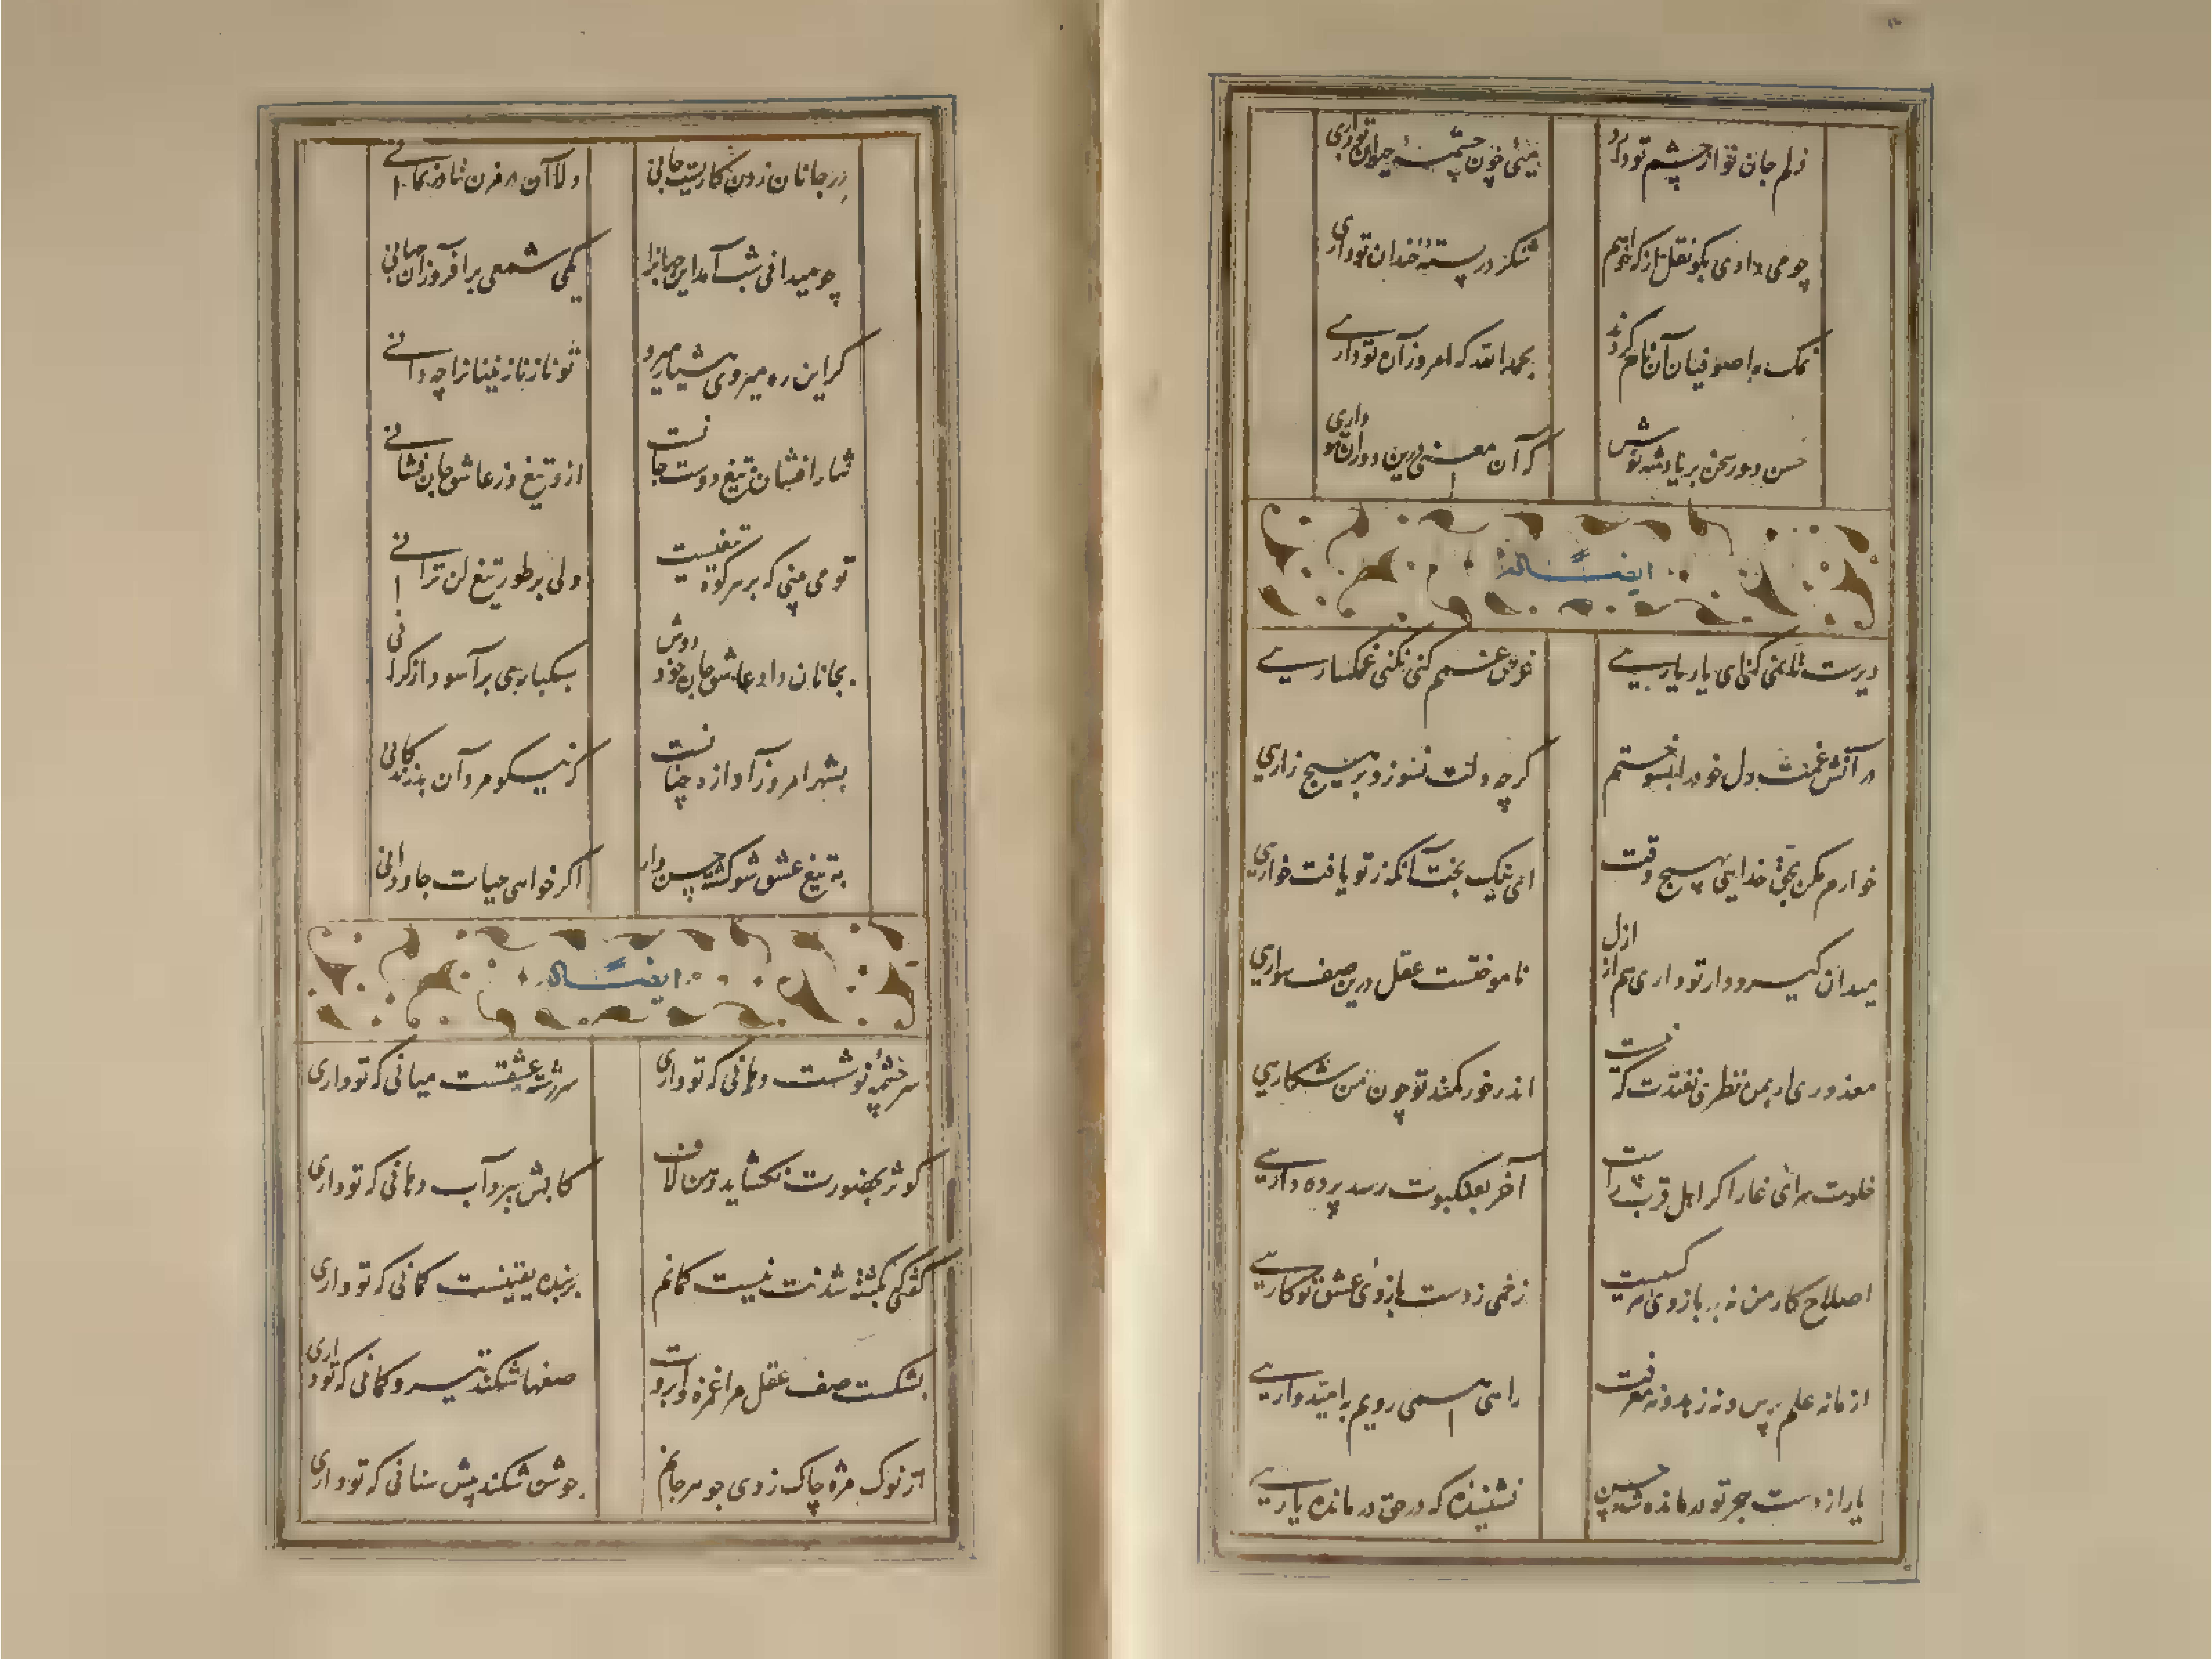 دلم جان تو از چشم تو دارد
بینی خون چشمهٔ حیوان تو داری
چو می دادی بگو نقل از که خواهم
شکر در پستهٔ خندان تو داری
نمک با صوفیان آن نام کردند
بحمد الله که امروز آن تو داری
حسن دور سخن بر یاد شه نوش
که آن معنی درین دوران تو داری
ایضاً له
دیرست تا نمی کنی ای یار یاریی
نوعی غمم کنی نکنی غمگساریی
در آتش غمت دل خود را بسوختم
گر چه دلت نسوزد بر هیچ زاریی
خوارم مکن بحق خدایی بهیچ وقت
ای نیک بخت آنکه ز تو یافت خواریی
میدان گیر و دار تو داری هم از ازل
نا موفقست عقل درین صف سواریی
معذوری ار بمن نظری نفتدت که نیست
اندر خور کمند تو چون من شکاریی
خلوت سرای غار اگر اهل قرب راست
آخر بعنکبوت رسد پرده داریی
اصلاح کار من نه به بازوی مرهمیست
زخمی ز دست بازوی عشق تو کاریی
از ما نه علم پرس و نه زهد و نه معرفت
راهی همی رویم به امیدواریی
یارا ز دست هجر تو درمانده شد حسن
نشنیدهٔ که در حق درمانده یاریی
در جانان زدن کاریست جانی
دلا آن در مزن تا در نمانی
چو میدانی شب آمد این جهانرا
یکی شمعی برافروز آن جهانی
گر این ره میروی هشیار میرو
تو ناز نازنینانرا چه دانی
نثار افشان تیغ دوست جانست
ازو تیغ و ز عاشق جان فشانی
تو می بینی که بر سر کوه تیغیست
ولی بر طور تیغ لن ترانی
بجانان داد عاشق جان خود دوش
سبکباری برآسود از گرانی
بشهر امروز آوازه چنانست
که نیکو مرد آن بنده فلانی
به تیغ عشق شو کشته حسن وار
اگر خواهی حیات جاودانی
ایضاً له
سرچشمهٔ نوشست دهانی که تو داری
سررشتهٔ عشقست میانی که تو داری
کوثر بحضورت نگشاید دهن لاف
کابش ببرد آب دهانی که تو داری
گفتی که بکشته شدنت نیست گمانم
بر بنده یقینست گمانی که تو داری
بشکست صف عقل مرا غمزه و ابروت
صفها شکند تیر و کمانی که تو داری
از نوک مژه چاک زدی جوهر جانم
جوشن شکند پیش سنانی که تو داری